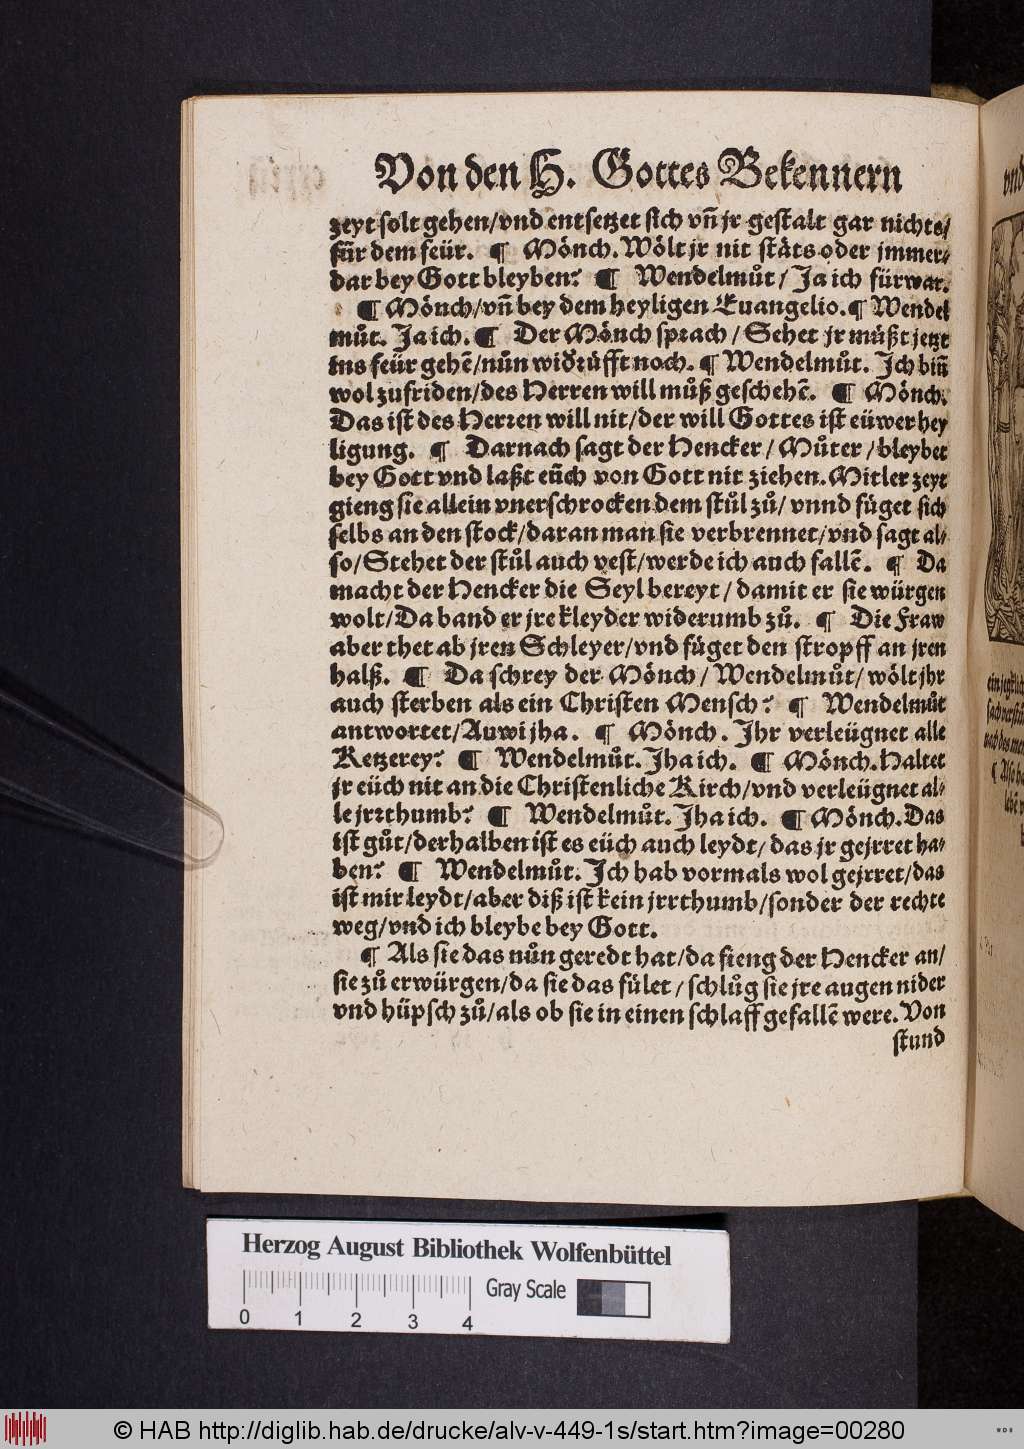 Von den H. Gottes Bekennern
zeyt solt gehen/vnd entsetzet sich vn̄ jr gestalt gar nichts/
für dem feür. ¶ Mönch. Wölt jr nit stäts oder jmmer-
dar bey Gott bleyben? ¶ Wendelmůt/ Ja ich fürwar.
¶ Mönch/vn̄ bey dem heyligen Euangelio. ¶ Wendel
můt. Ja ich. ¶ Der Mönch sprach/ Sehet jr müßt jetzt
ins feür gehē/nůn widrůfft noch. ¶ Wendelmůt. Ich bin̄
wol zufriden/des Herren will můß geschehē. ¶ Mönch.
Das ist des Herren will nit/der will Gottes ist eüwer hey
ligung. ¶ Darnach sagt der Hencker/ Můter/bleybet
bey Gott vnd laßt eüch von Gott nit ziehen. Mitler zeyt
gieng sie allein vnerschrocken dem stůl zů/ vnnd füget sich
selbs an den stock/daran man sie verbrennet/vnd sagt al-
so/Stehet der stůl auch vest/werde ich auch fallē. ¶ Da
macht der Hencker die Seyl bereyt/ damit er sie würgen
wolt/Da band er jre kleyder widerumb zů. ¶ Die Fraw
aber thet ab jren Schleyer/vnd füget den stropff an jren
halß. ¶ Da schrey der Mönch/ Wendelmůt/ wölt jhr
auch sterben als ein Christen Mensch? ¶ Wendelmůt
antwortet/Auwi jha. ¶ Mönch. Ihr verleügnet alle
Ketzerey? ¶ Wendelmůt. Jha ich. ¶ Mönch. Haltet
jr eüch nit an die Christenliche Kirch/vnd verleügnet al-
le jrrthumb? ¶ Wendelmůt. Jha ich. ¶ Mönch. Das
ist gůt/derhalben ist es eüch auch leydt/ das jr gejrret ha-
ben? ¶ Wendelmůt. Ich hab vormals wol gejrret/das
ist mir leydt/aber diß ist kein jrrthumb/sonder der rechte
weg/vnd ich bleybe bey Gott.
¶ Als sie das nůn geredt hat/da fieng der Hencker an/
sie zů erwürgen/da sie das fület/ schlůg sie jre augen nider
vnd hüpsch zů/als ob sie in einen schlaff gefallē were. Von
stund
Herzog August Bibliothek Wolfenbüttel
Gray Scale
0 1 2 3 4
© HAB http://diglib.hab.de/drucke/alv-v-449-1s/start.htm?image=00280